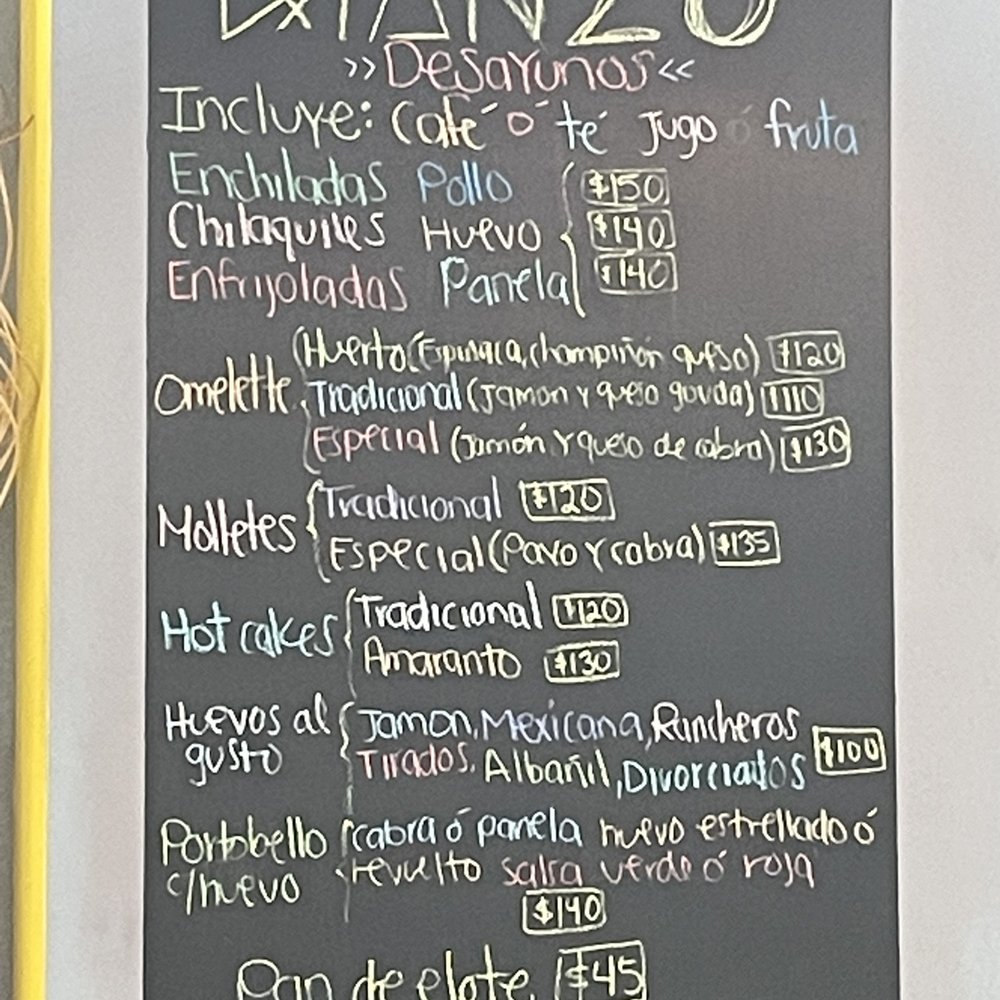 >> Desayunos <<
Incluye: Café ó té Jugo ó fruta
Enchiladas Pollo $150
Chilaquiles Huevo $140
Enfrijoladas Panela $140
Omelette Huerto (Espinaca, champiñón queso) $120
Tradicional (Jamon y queso gouda) $110
Especial (Jamón y queso de cabra) $130
Molletes Tradicional $120
Especial (Pavo y cabra) $135
Hot cakes Tradicional $120
Amaranto $130
Huevos al gusto Jamon, Mexicana, Rancheros
Tirados, Albañil, Divorciados $100
Portobello c/huevo cabra ó panela huevo estrellado ó
revuelto salsa verde ó roja
$140
Pan de elote $45